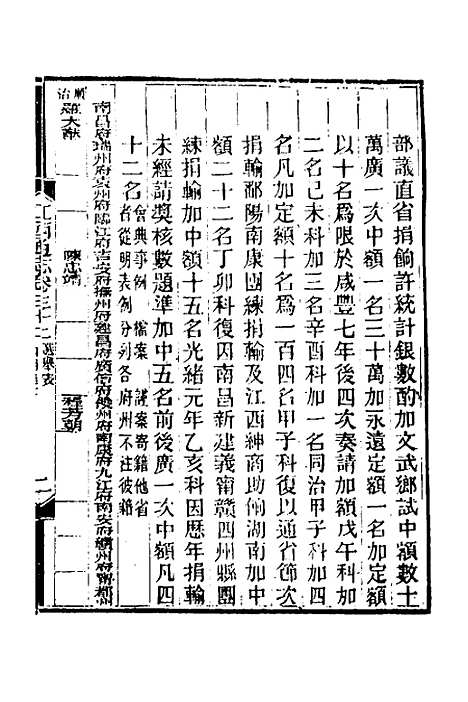 部議直省捐餉許統計銀數酌加文武鄉試中額數十
萬廣一次中額一名三十萬加永遠定額一名加定額
以十名爲限於咸豐七年後四次奏請加額戊午科加
二名己未科加三名辛酉科加一名同治甲子科加四
名凡加定額十名爲一百四名甲子科復以通省節次
捐輸鄱陽南康團練捐輸及江西紳商助餉湖南加中
額二十二名丁卯科復因南昌新建義甯贛四州縣團
練捐輸加中額十五名光緒元年乙亥科因歷年捐輸
未經請奬核數題準加中五名前後廣一次中額凡四
十二名會典事例 檔案 謹案寄籍他省
者從明表例分列各府州不注彼籍
南昌府瑞州府袁州府臨江府吉安府撫州府建昌府廣信府饒州府南康府九江府南安府贛州府甯都州
順治
羅大猷
陳忠靖
程芳朝
江西通志卷三十二 選舉表
二